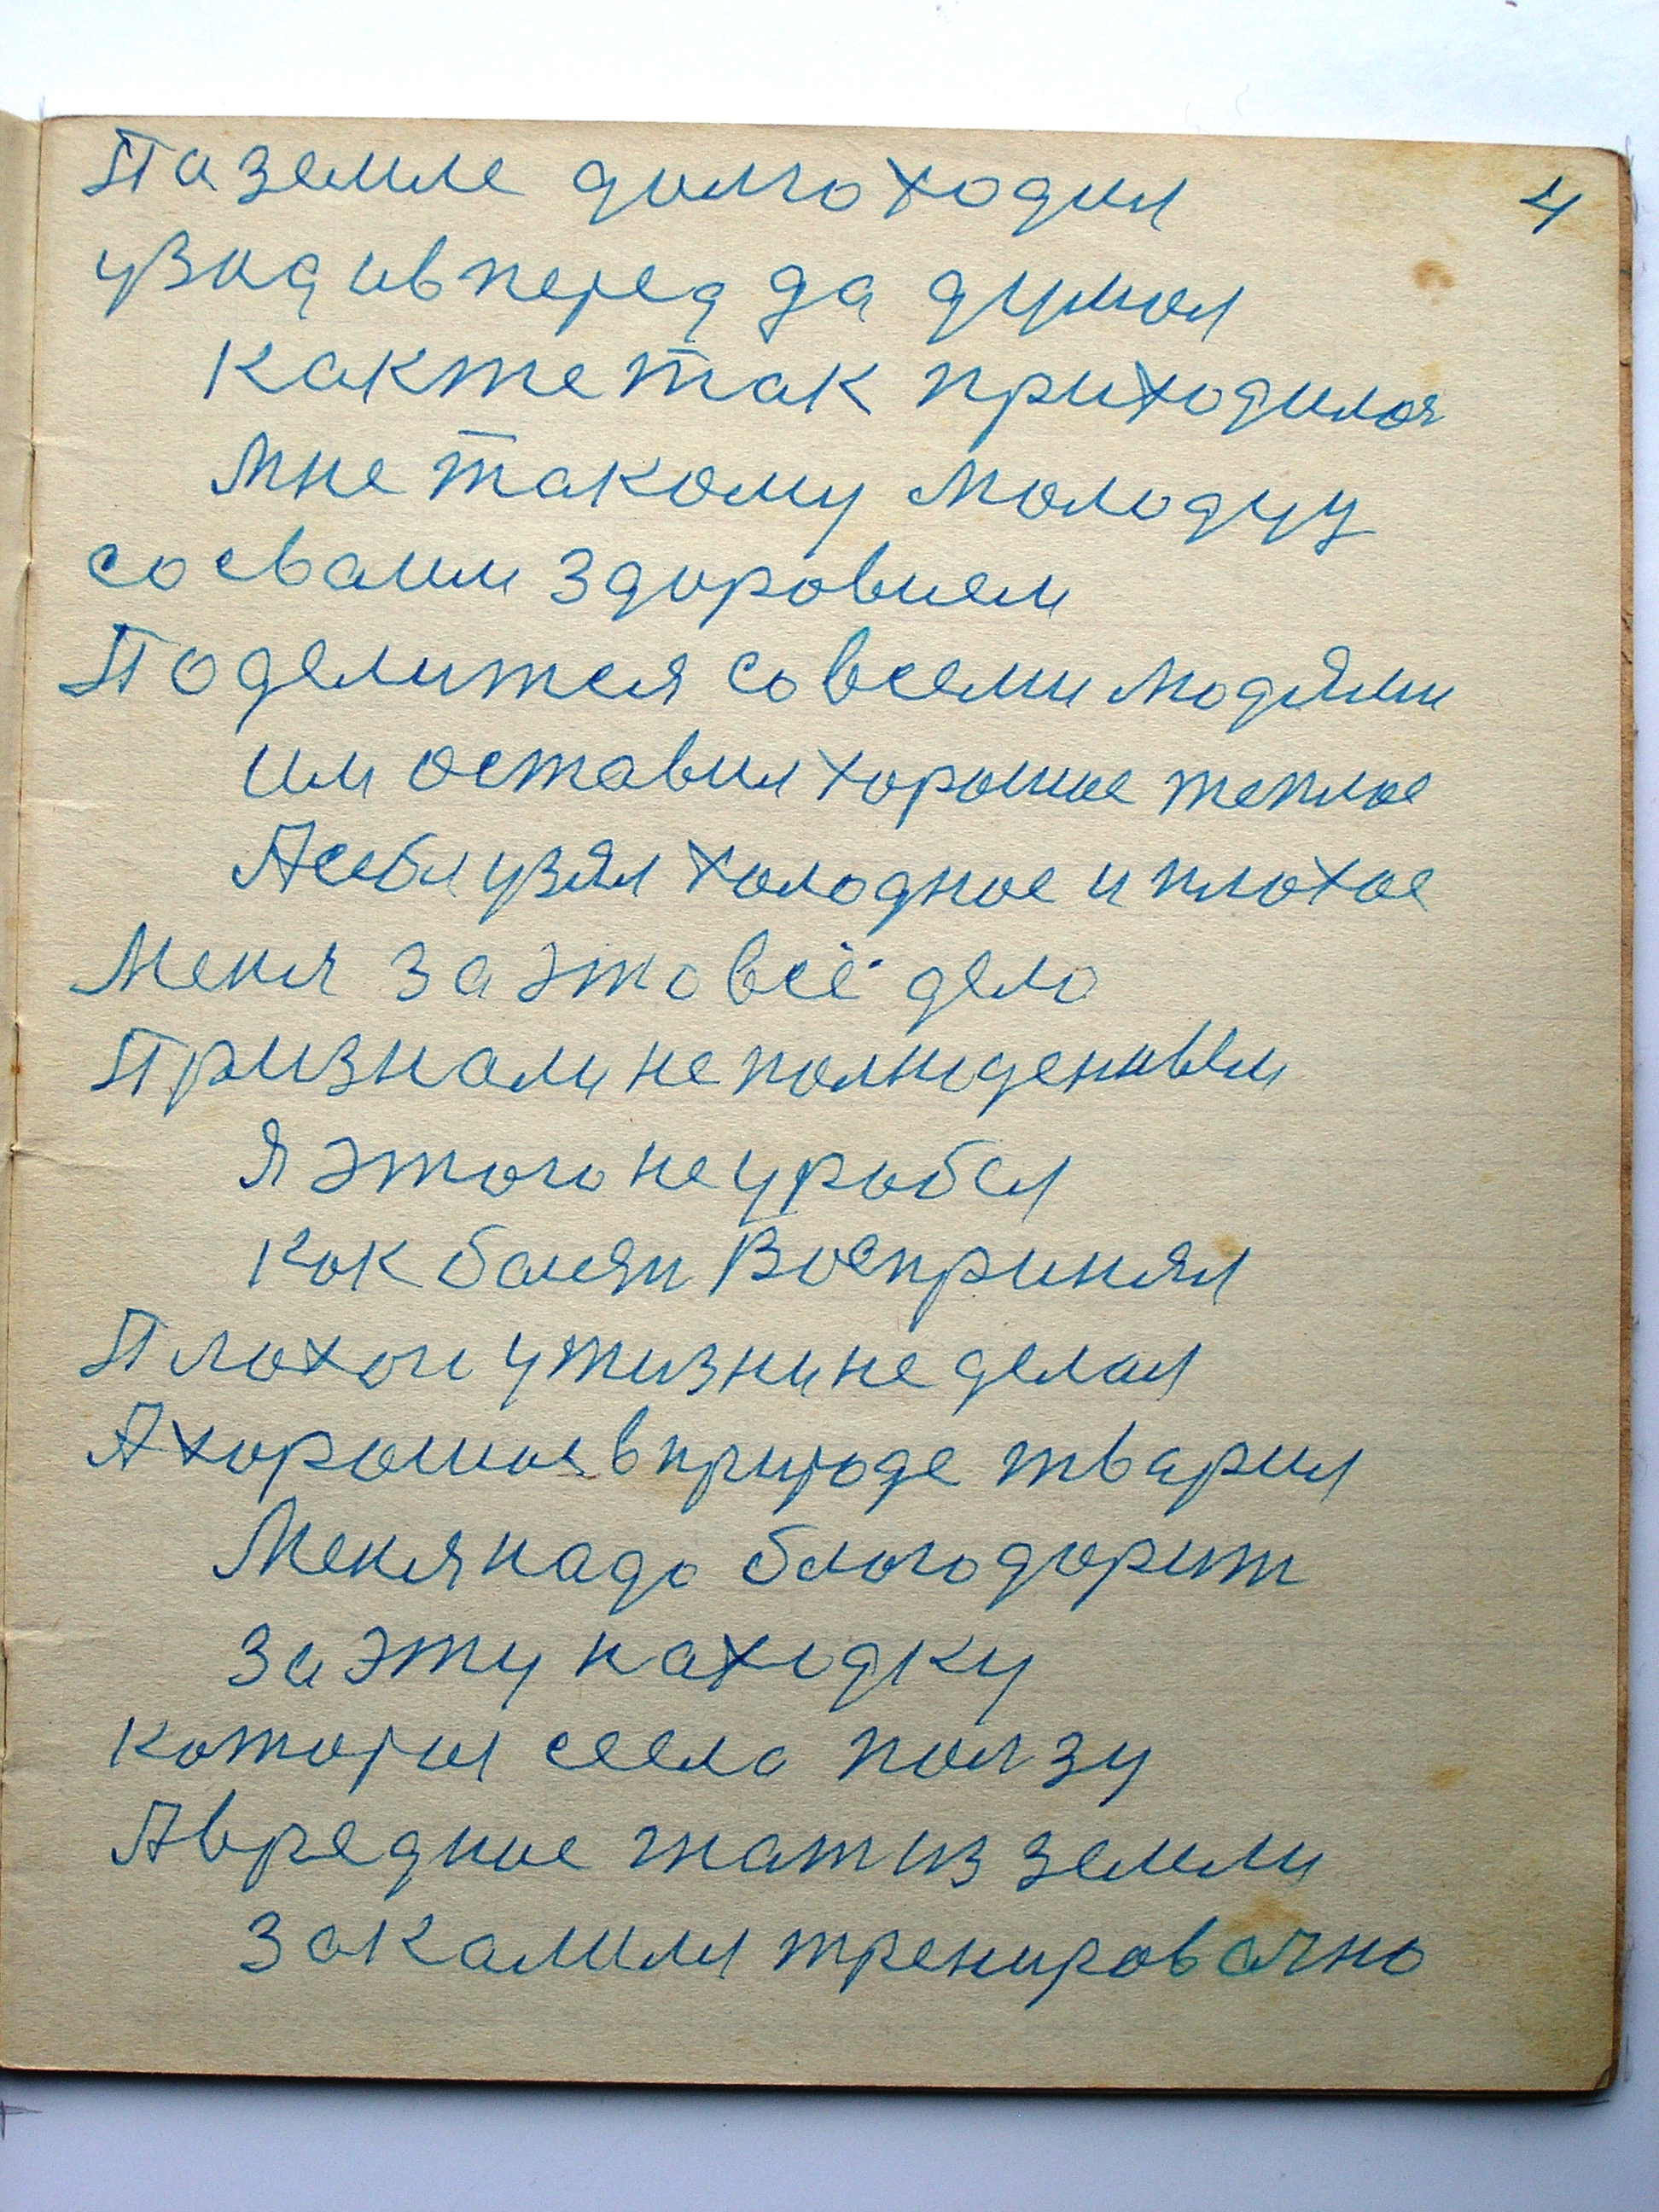 Па земле долго ходил
4
узад ивперед да думал
как же так приходилоя
Мне такому молодцу
со сваим здоровием
Поделится со всеми людями
им оставил хорошое теплое
А себя узял холодное и плохое
Меня за это всё дело
Признали не полноденным
Я этого не уробел
как баян Воспринял
Плохои ужизни не делал
А хорошоя в природе тварил
Меня надо благодорит
За эту находку
которая села ползу
А вредное жат из земли
Закалиля тренировачно